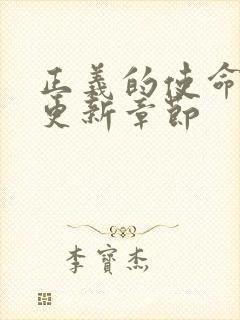 正義的使命
更新章節
李寶杰